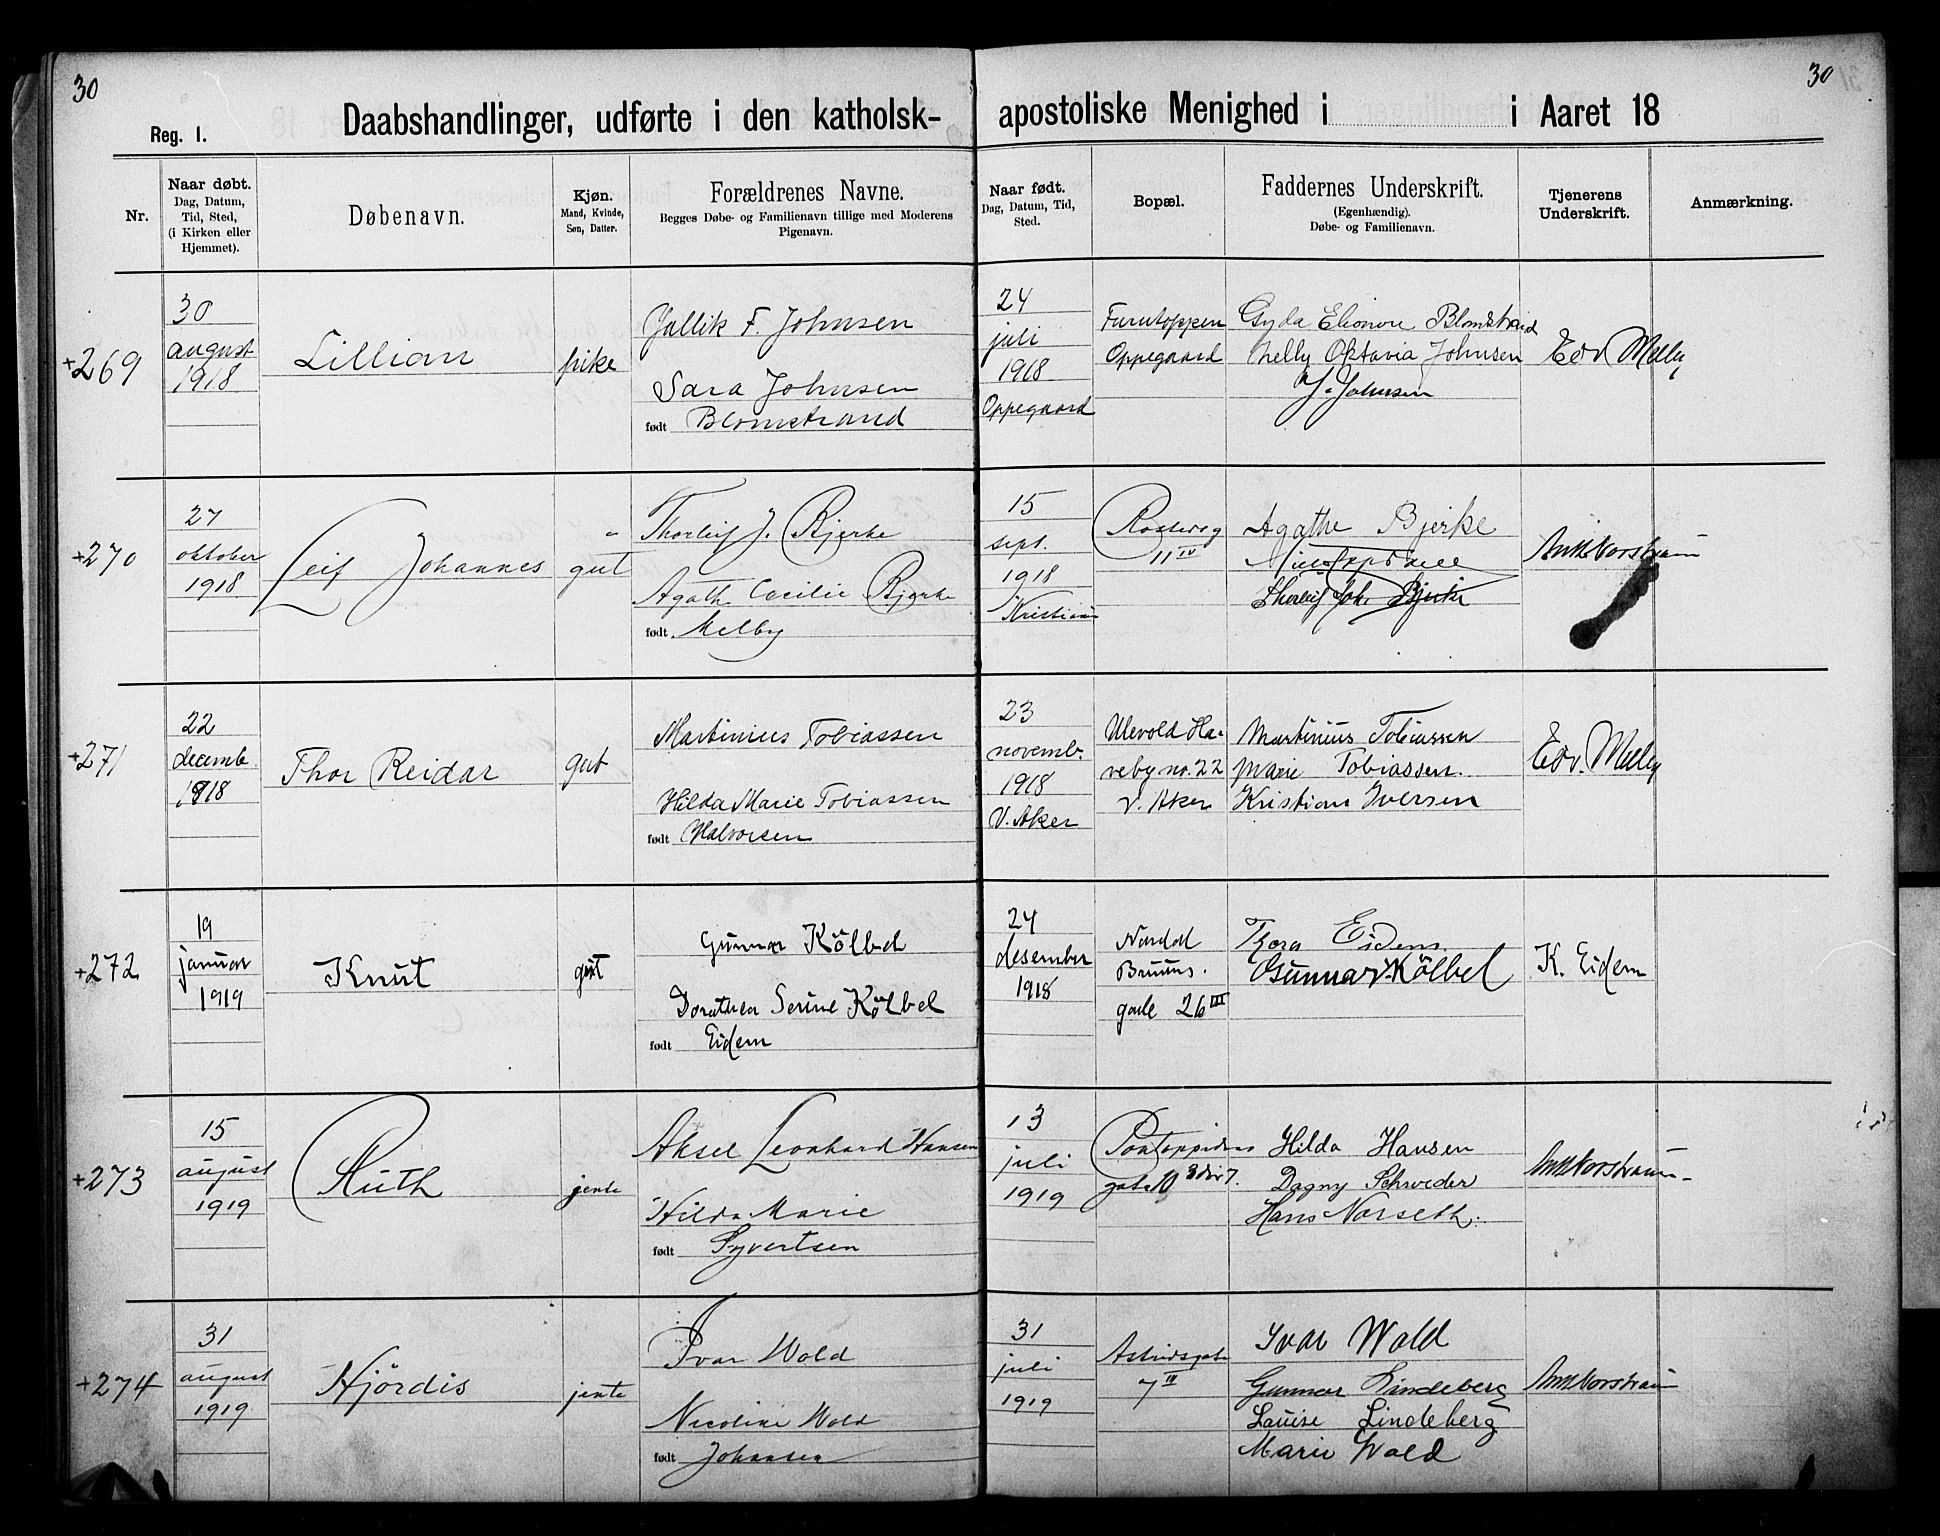 30
30
Reg. 1.
Daabshandlinger, udførte i den katholsk-apostoliske Menighed i i Aaret 18
Nr.
Naar døbt.
Dag, Datum,
Tid, Sted,
(i Kirken eller
Hjemmet).
Døbenavn.
Kjøn.
Mand, Kvinde,
Søn, Datter.
Forældrenes Navne.
Begges Døbe- og Familienavn tillige med Moderens
Pigenavn.
Naar født.
Dag, Datum, Tid,
Sted.
Bopæl.
Faddernes Underskrift.
(Egenhændig).
Døbe- og Familienavn.
Tjenerens
Underskrift.
Anmærkning.
+269
30
august
1918
Lillian
pike
F. Johnsen
Sara Johnsen
født Blomstrand
24
juli
1918
Oppegaard
Furutoppen
Oppegaard
Gyda Elionore Blomstrand
Nelly Oktavia Johnsen
Y. Johnsen
Edv Melby
+270
27
oktober
1918
Leif Johannes
gut
Thorleif J. Bjerke
Agathe Cecilie Bjerke
født Melby
15
sept.
1918
Kristiania
11 IV
Agathe Bjerke
Thorleif Joh. Bjerke
+271
22
decemb.
1918
Thor Reidar
gut
Martinius Tobiassen
Hilda Marie Tobiassen
født Halvorsen
23
novemb.
1918
V. Aker
Ulevold Ha-
veby no. 22
V. Aker
Martinius Tobiassen
Marie Tobiassen.
Kristian Iversen
Edv. Melby
+272
19
januar
1919
Knut
gut
Gunnar Kölbel
Dorothea Serine Kölbel
født Eidem
24
desember
1918
Nordal
Bruuns.
gade 26 III
Thora Eidem.
Gunnar Kölbel
K. Eidem
+273
15
august
1919
Ruth
jente
Aksel Leonhard Hansen
Hilda Marie
født Syvertsen
13
juli
1919
Pontoppidans
gate 10
Hilda Hansen
Dagny Schrøder
Hans Norseth.
+274
31
august
1919
Hjördis
jente
Ivar Wold
Nicoline Wold
født Johansen
31
juli
1919
Astridsgate
7 III
Ivar Wold
Gunnar Lindeberg
Louise Lindeberg
Marie Wold